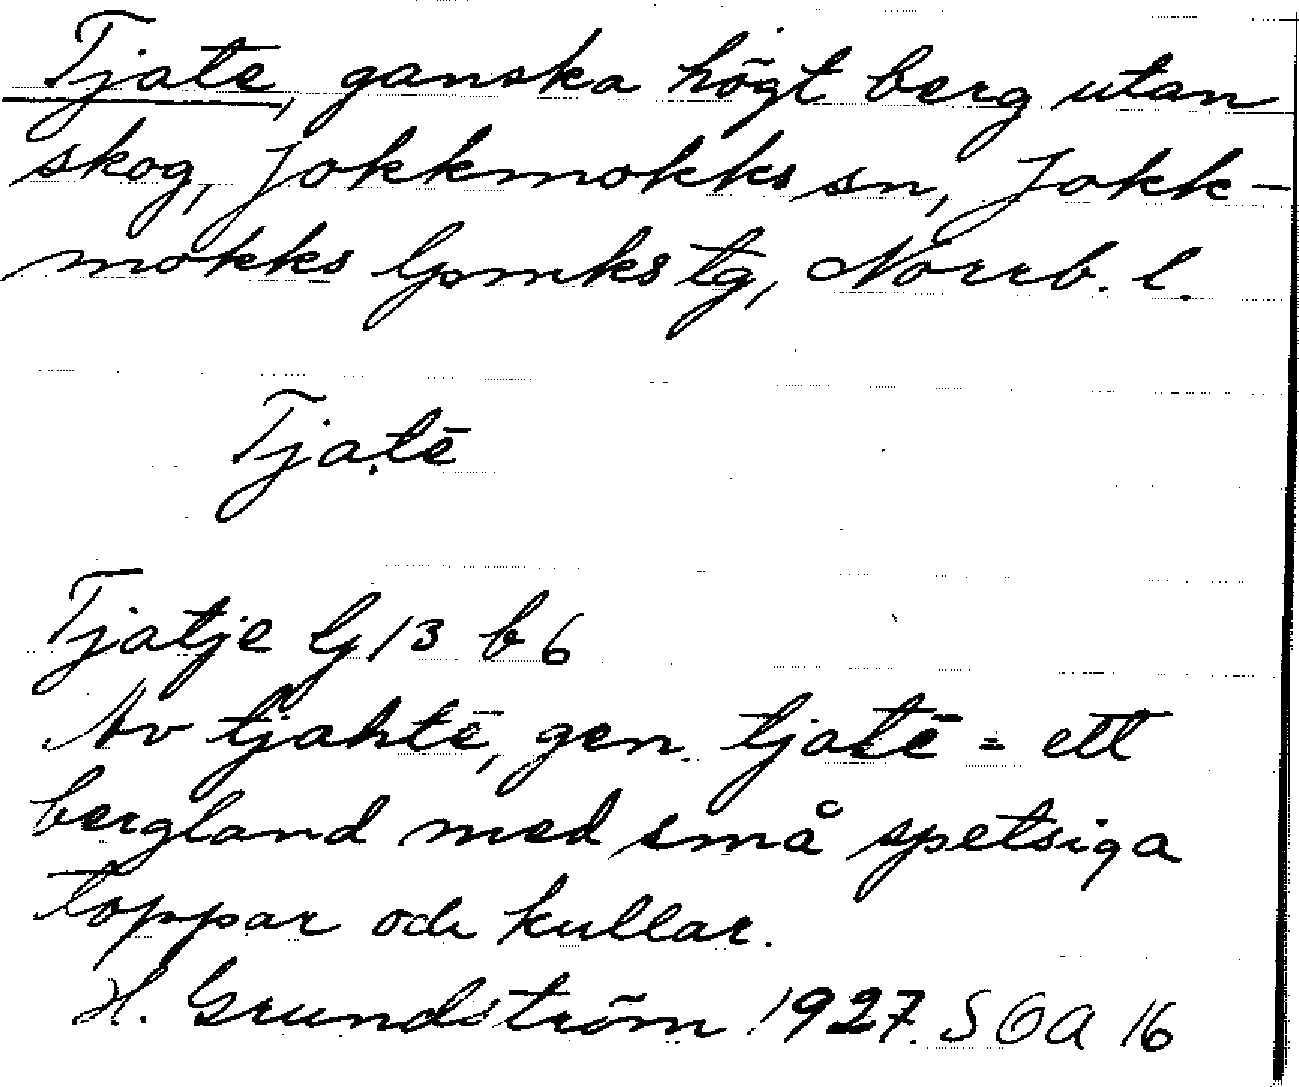 Tjate, ganska högt berg utan
skog, Jokkmokks sn, Jokk-
mokks lpmks tg, Norrb. l.
Tjạtē
Tjatje lj 13 b 6
Av tjahtē, gen. tjatē = ett
bergland med små spetsiga
toppar och kullar.
H. Grundström 1927. SOA 16